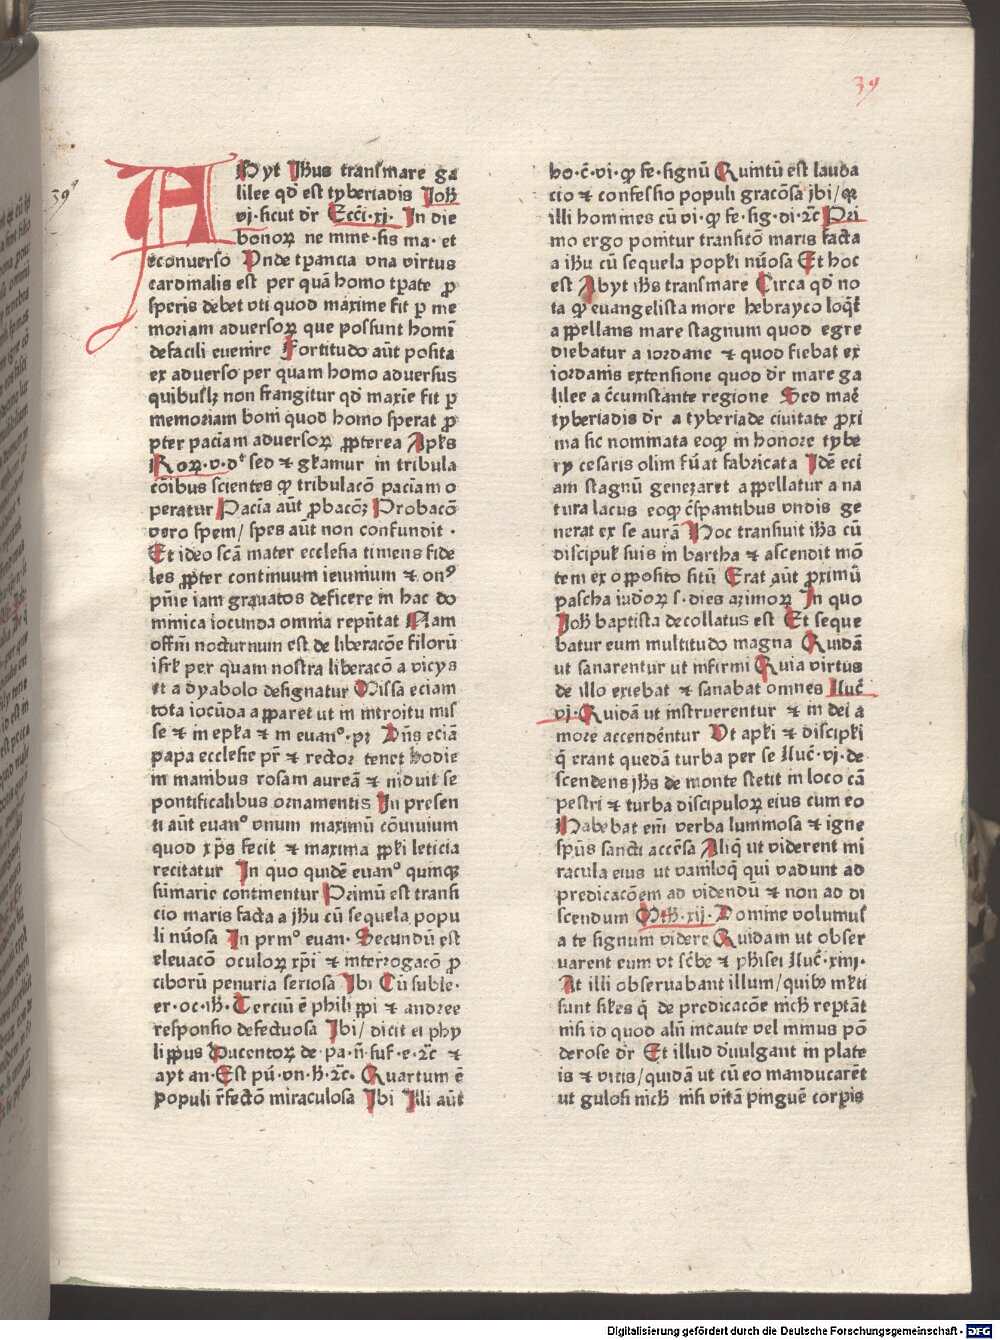 39
39
A Bÿt Jhus transmare ga
lilee qđ est tyberiadis Joh̄
vj·sicut dr̄ Ecci·xj· In die
bonoꝝ ne mme·sis ma· et
econuerso Vnde tꝑancia vna virtus
cardinalis est per quā homo tꝑate ꝓ
speris debet vti quod maxime fit ꝑ me
moriam aduersoꝝ que possunt homī
defacili euenire Fortitudo aūt posita
ex aduerso per quam homo aduersus
quibuslꝫ non frangitur qđ maxīe fit ꝑ
memoriam boni quod homo sperat ꝓ
pter paciam aduersoꝝ ꝓpterea Apl̄s
Roꝝ·v·dt sed ⁊ gl̄amur in tribula
cōibus scientes ꝙ tribulacō paciam o
peratur Pacia aūt ꝓbacōꝫ Probacō
vero spem/ spes aūt non confundit ·
Et ideo scā mater ecclesia timens fide
les ꝓpter continuum ieiunium ⁊ onꝰ
pn̄ie iam grauatos deficere in hac do
minica iocunda omnia repn̄tat Nam
offīm nocturnum est de liberacōe filorū
isrl̄ per quam nostra liberacō a vicÿs
et a dyabolo designatur Missa eciam
tota iocūda apparet ut in introitu mis
se ⁊ in epl̄a ⁊ in euanº·pꝫ Dn̄s eciā
papa ecclesie pr̄ ⁊ rector tenet hodie
in manibus rosam aureā ⁊ niduit se
pontificalibus ornamentis In presen
ti aūt euanº vnum maximū cōuiuium
quod xp̄s fecit ⁊ maxima ppl̄i leticia
recitatur In quo quidē euanº quinqꝫ
sūmarie continentur Primū est transi
cio maris facta a jhu cū sequela popu
li nūosa In prmº euan· Secundū est
eleuacō oculoꝝ xp̄i ⁊ interrogacō ꝓ
ciborū penuria seriosa Jbi Cū suble·
er·oc·ih̄· Terciū ē philippi ⁊ andree
responsio defectuosa Jbi/ dicit ei phy
lippus Ducentoꝝ de·pa·n̄·suf·e·⁊c̄ ⁊
ayt an·Est pū·vn·h̄·⁊c̄· Quartum ē
populi r̄fectō miraculosa Jbi Jlli aūt
ho·c̄·vi·ꝙ fe·signū Quintū est lauda
cio ⁊ confessio populi gracōsa jbi/ꝙ
illi hommes cū vi·ꝙ fe·sig·di·⁊c̄ Pri
mo ergo ponitur transitō maris facta
a ihu cū sequela popl̄i nūosa Et hoc
est Abyt ihs transmare Circa qđ no
ta ꝙ euangelista more hebrayco loqt̄
appellans mare stagnum quod egre
diebatur a iordane ⁊ quod fiebat ex
iordanis extensione quod dr̄ mare ga
lilee a c̄cumstante regione Sed mar̄
tyberiadis dr̄ a tyberiade ciuitate ꝓxi
ma sic nommata eoꝙ in honore tybe
ry cesaris olim fūat fabricata Idē eci
am stagnū genezaret appellatur a na
tura lacus eoꝙ c̄spantibus vndis ge
nerat ex se aurā Hoc transiuit ihs cū
discipul̄ suis in bartha ⁊ ascendit mō
tem ex opposito sitū Erat aūt ꝓximū
pascha iudoꝝ s·dies azimoꝝ In quo
Joh̄ baptista decollatus est Et seque
batur eum multitudo magna Quidā
ut sanarentur ut infirmi Quia virtus
de illo exiebat ⁊ sanabat omnes Luc̄
vj·Quidā ut instruerentur ⁊ in dei a
more accendēntur Vt apl̄i ⁊ discipl̄i
q̄ erant quedā turba per se Luc̄·vj·de
scendens jhs de monte stetit in loco cā
pestri ⁊ turba discipuloꝝ eius cum eo
Habebat em̄ verba luminosa ⁊ igne
sp̄us sancti accēsa Aliq̄ ut viderent mi
racula eius ut vaniloq̄ qui vadunt ad
predicacōem ad videndū ⁊ non ad di
scendum Mth̄·xij· Domine volumus
a te signum videre Quidam ut obser
uarent eum vt sc̄be ⁊ ph̄isei Luc̄·xiiij·
At illi obseruabant illum/quibꝰ ml̄ti
sunt sil̄es q̄ de predicacōe nich̄ reptāt
nisi id quod alīi incaute vel minus pō
derose dr̄ Et illud dīuulgant in plate
is ⁊ vicis/quidā ut cū eo manducarēt
ut gulosi nich̄ nisi vitā pinguē corpis
Digitalisierung gefördert durch die Deutsche Forschungsgemeinschaft · DFG